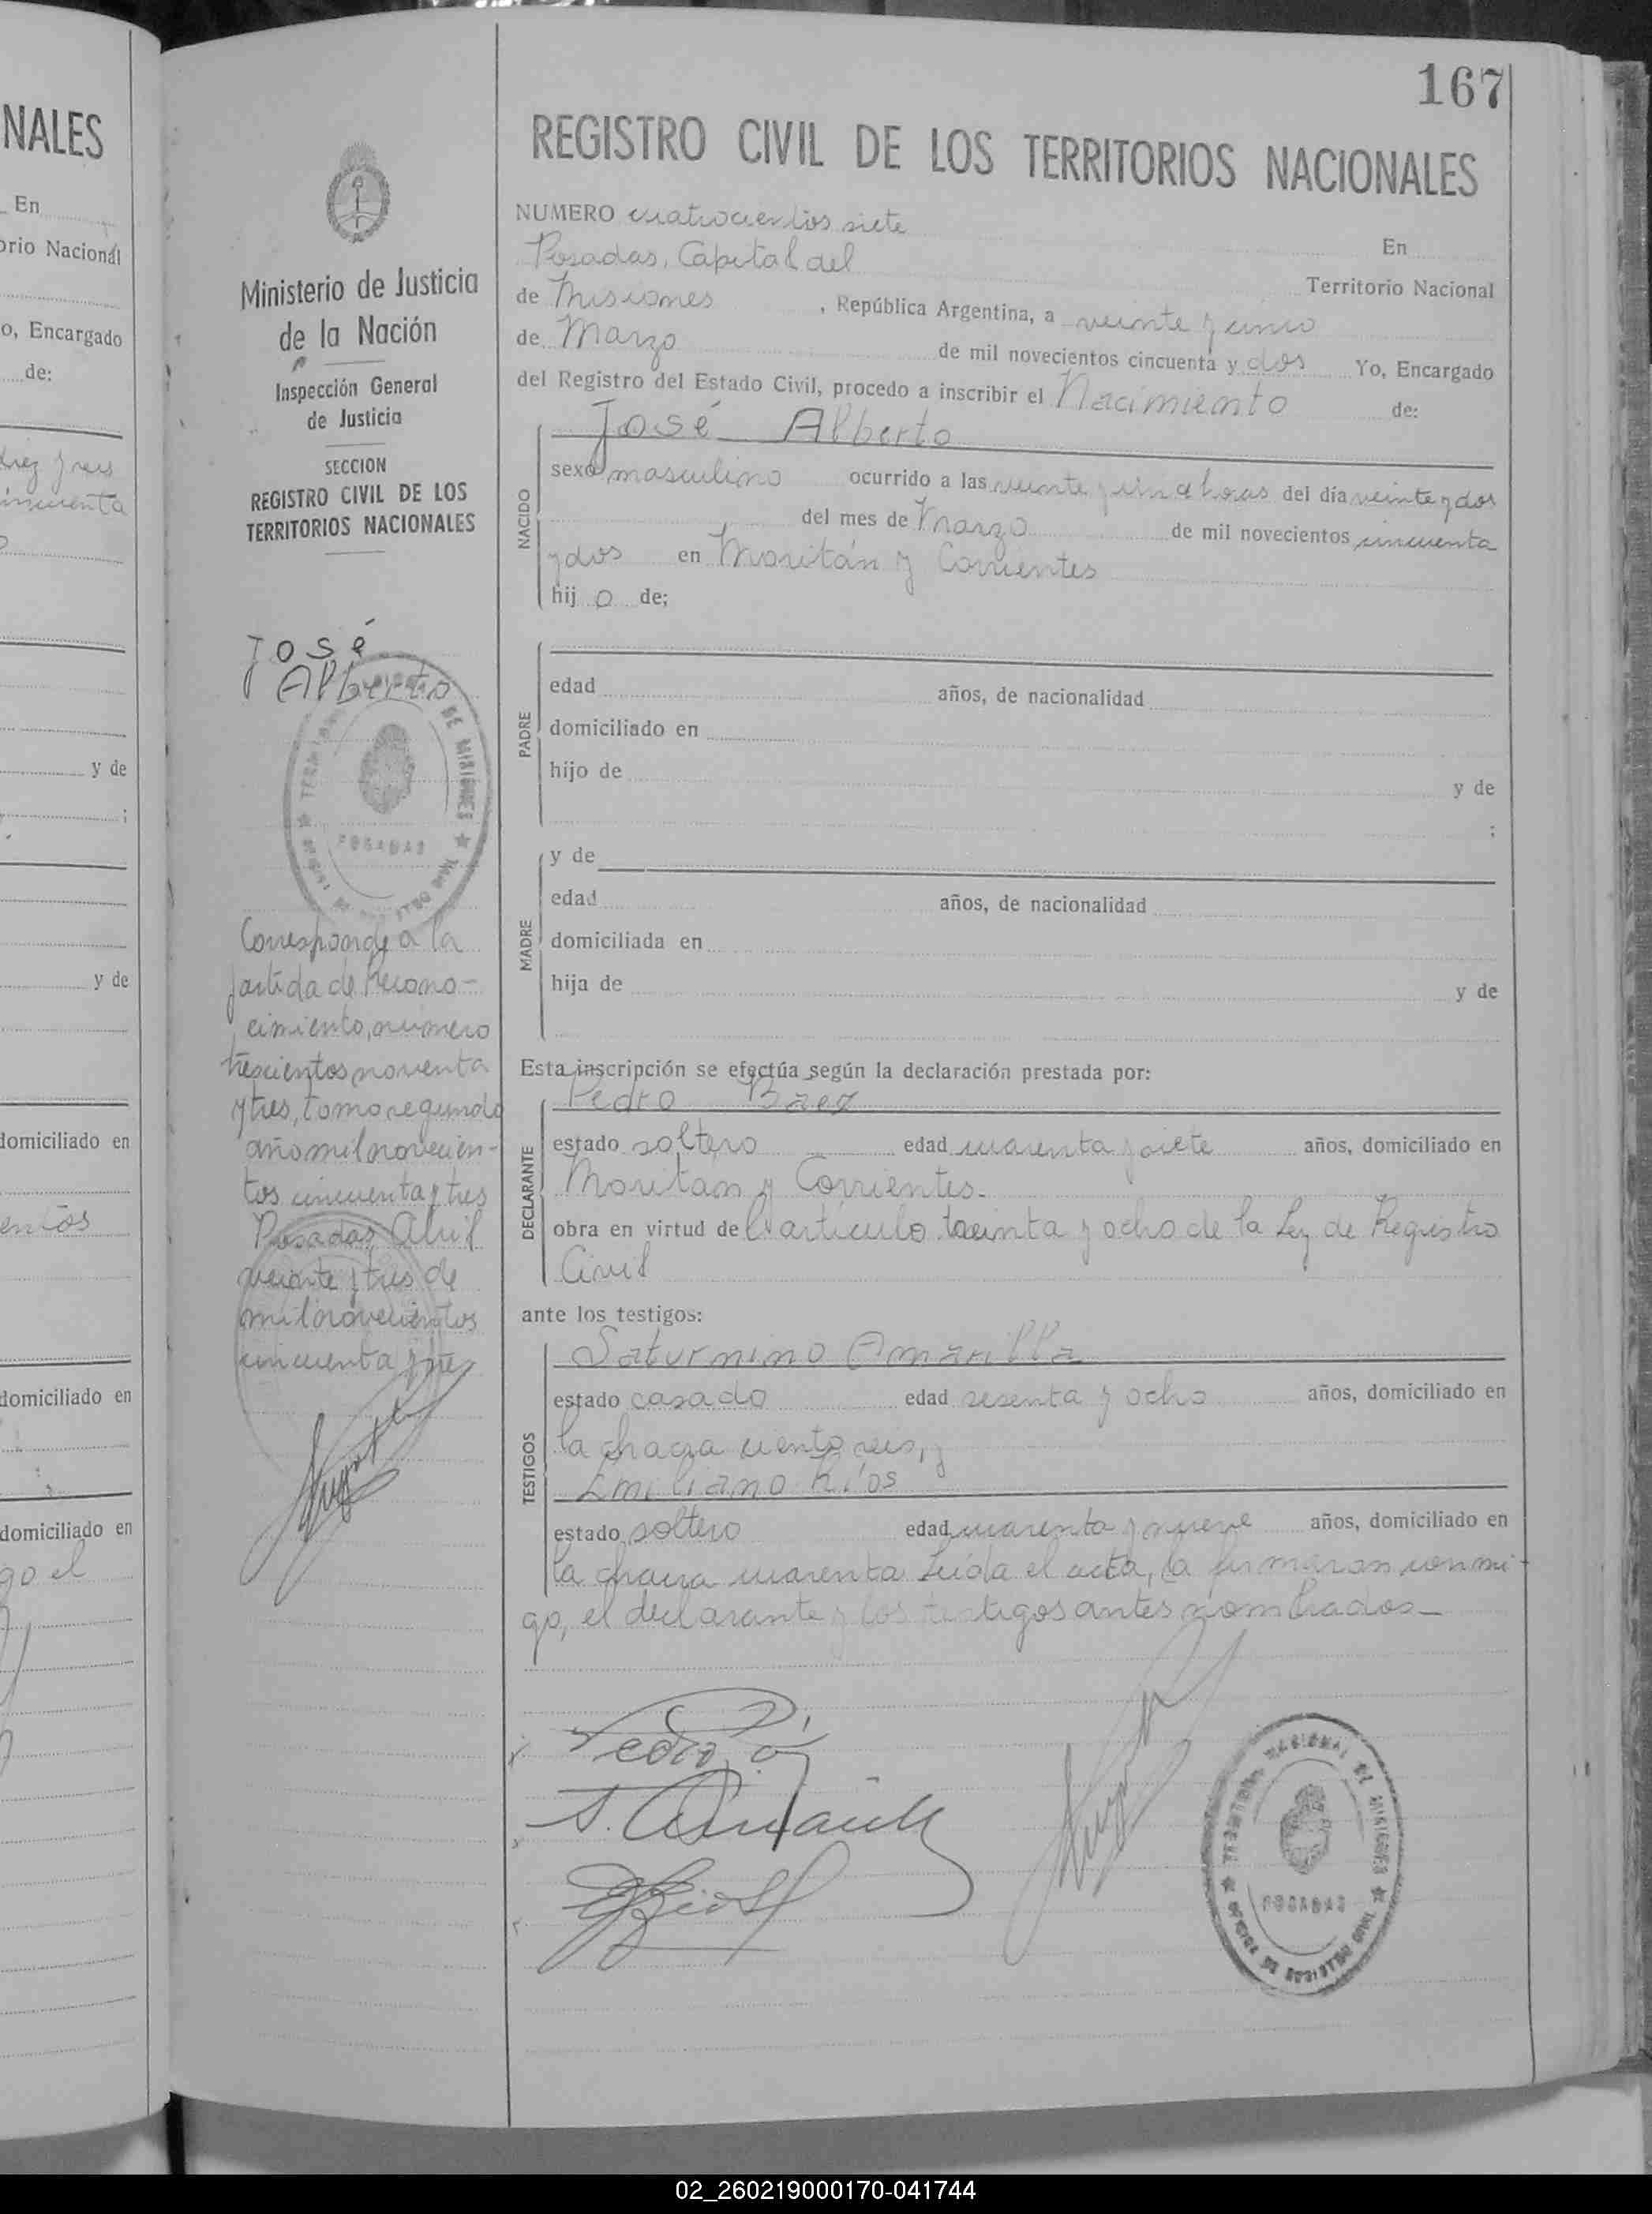 NALES
En
orio Nacional
o, Encargado
de:
diez y seis
cincuenta
y de
;
y de
domiciliado en
entos
domiciliado en
domiciliado en
go el
Ministerio de Justicia
de la Nación
Inspección General
de Justicia
SECCION
REGISTRO CIVIL DE LOS
TERRITORIOS NACIONALES
José
Alberto
DE MISIONES
POSADAS
Corresponde a la
partida de Recono-
cimiento, número
trescientos noventa
y tres, tomo segundo
año mil novecien-
tos cincuenta y tres
Posadas, Abril
veinte y tres de
mil novecientos
cincuenta y tres
167
REGISTRO CIVIL DE LOS TERRITORIOS NACIONALES
NUMERO cuatrocientos siete
En
Posadas, Capital del
Territorio Nacional
de Misiones , República Argentina, a veinte y cinco
de Marzo de mil novecientos cincuenta y dos Yo, Encargado
del Registro del Estado Civil, procedo a inscribir el Nacimiento de:
NACIDO
José Alberto
sexo masculino ocurrido a las veinte y una horas del día veinte y dos
del mes de Marzo de mil novecientos cincuenta
y dos en Moritán y Corrientes
hij o de;
PADRE
edad años, de nacionalidad
domiciliado en
hijo de y de
;
MADRE
y de
edad años, de nacionalidad
domiciliada en
hija de y de
Esta inscripción se efectúa según la declaración prestada por:
DECLARANTE
Pedro Baez
estado soltero edad cuarenta y siete años, domiciliado en
Moritan y Corrientes.
obra en virtud del artículo treinta y ocho de la Ley de Registro
Civil
ante los testigos:
TESTIGOS
Saturnino Amarilla
estado casado edad sesenta y ocho años, domiciliado en
la chacra ciento seis, y
Emiliano Ríos
estado soltero edad cuarenta y nueve años, domiciliado en
la chacra cuarenta Leída el acta, la firmaron conmi-
go, el declarante y los testigos antes nombrados_
Pedro
S. Amarilla
TERRITORIO NACIONAL DE MISIONES
POSADAS
OFICINA DE REGISTRO CIVIL
02_260219000170-041744